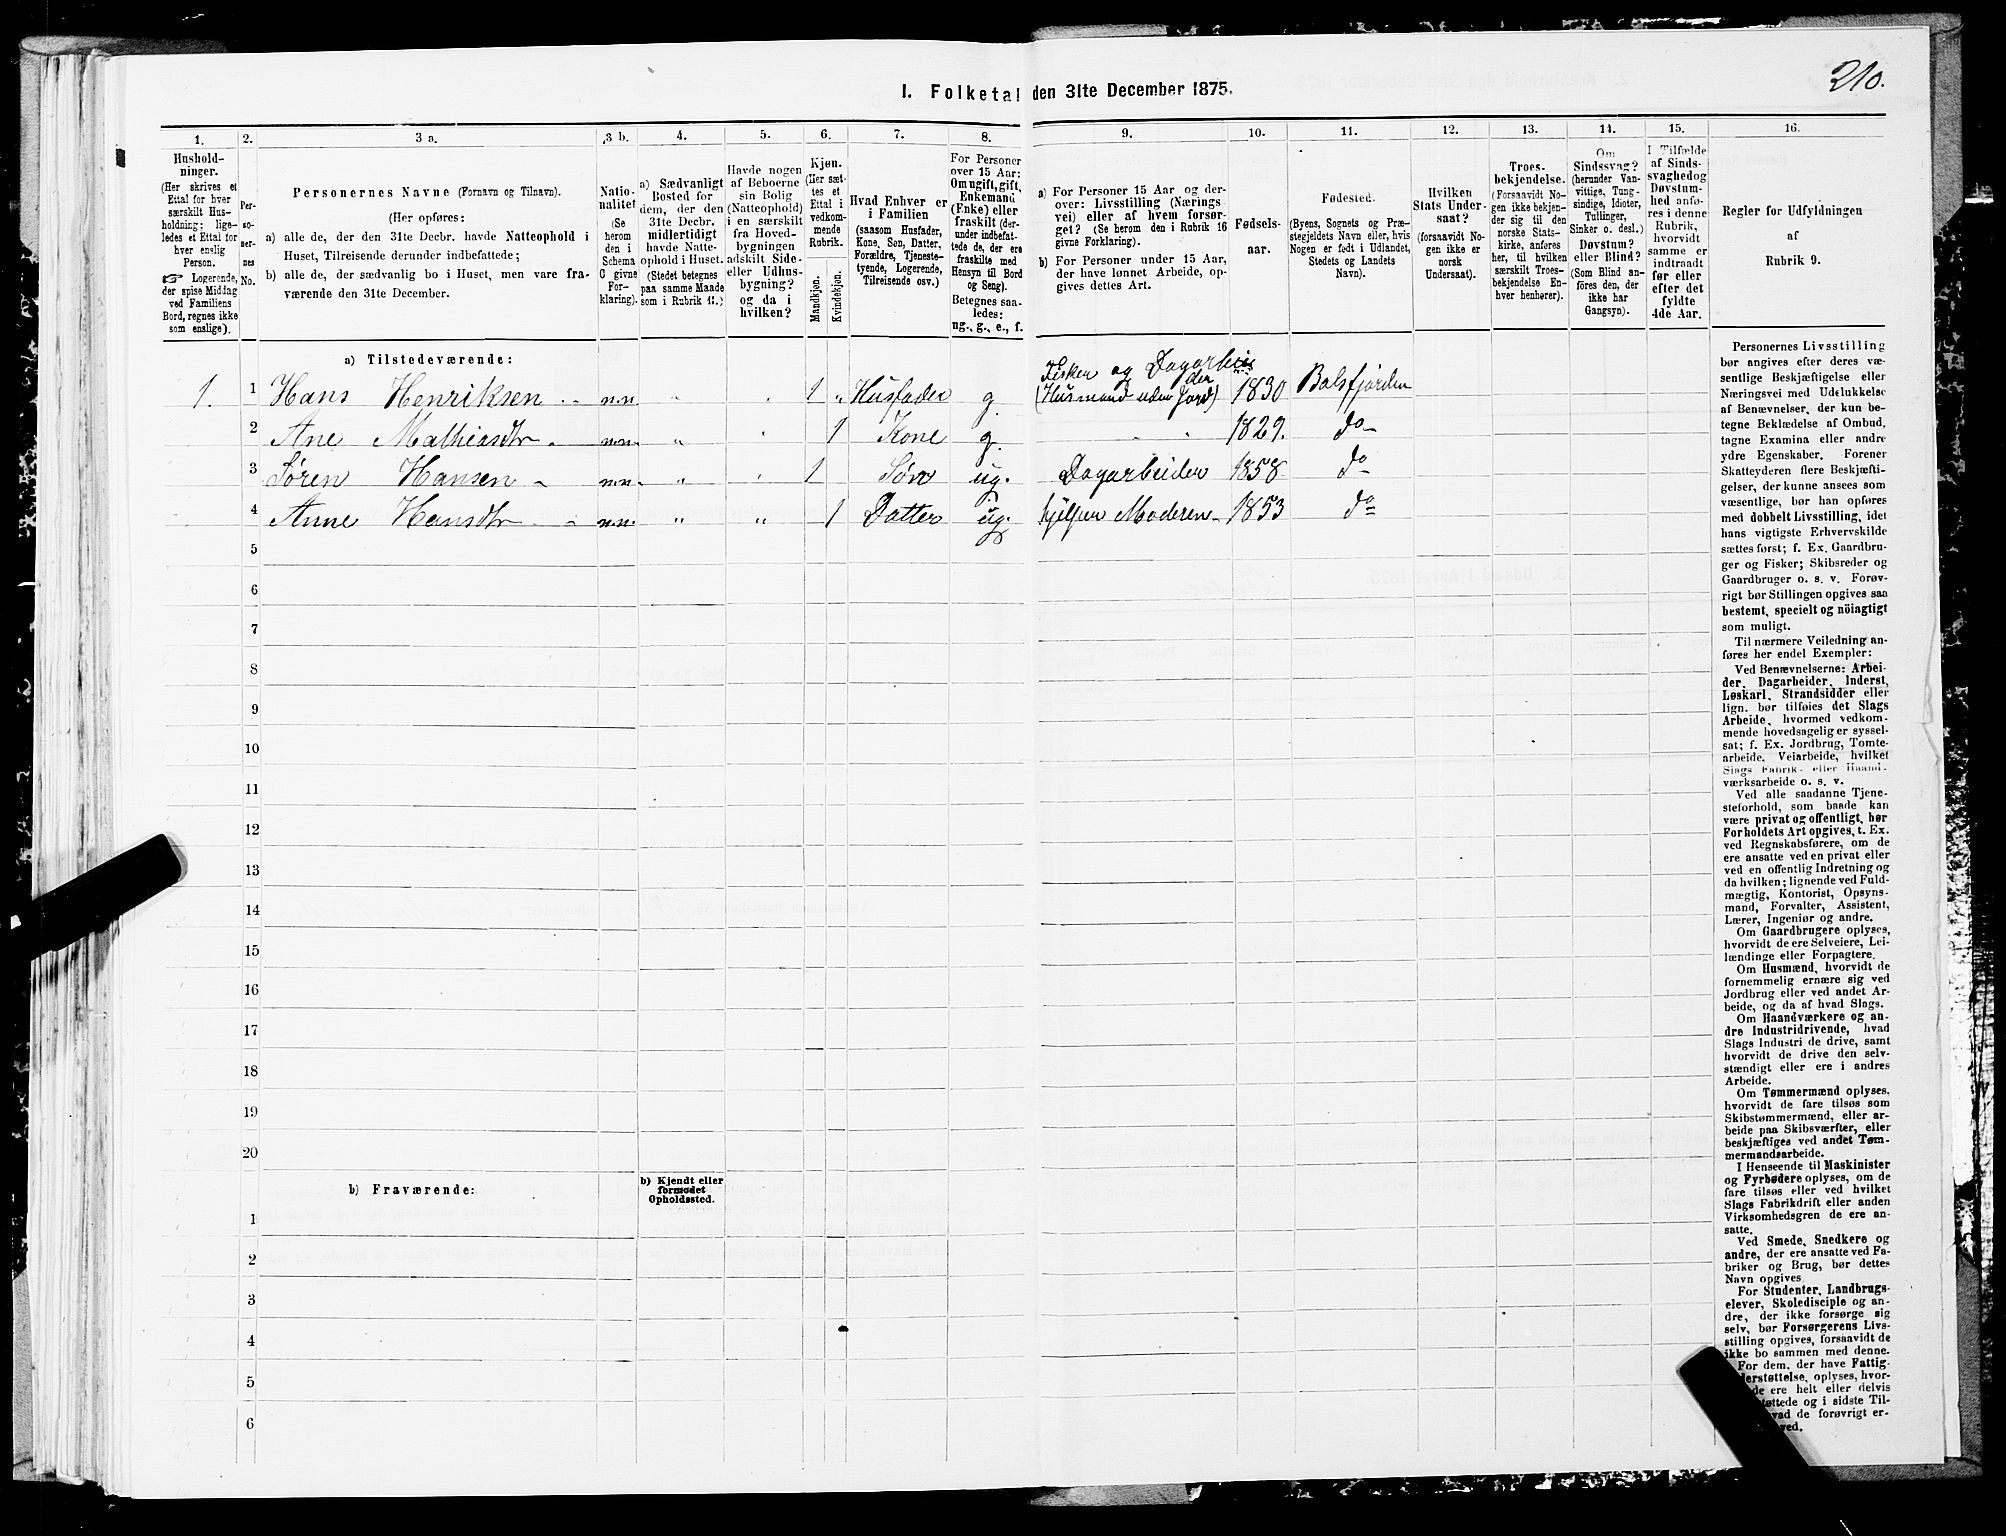 210.
I. Folketal den 31te December 1875.
1.
Hushold-
ninger.
(Her skrives et
Ettal for hver
særskilt Hus-
holdning; lige-
ledes et Ettal for
hver enslig
Person.
☞ Logerende,
der spise Middag
ved Familiens
Bord, regnes ikke
som enslige).
2.
Per-
so-
ner-
nes
No.
3 a.
Personernes Navne (Fornavn og Tilnavn).
(Her opføres:
a) alle de, der den 31te Decbr. havde Natteophold i
Huset, Tilreisende derunder indbefattede;
b) alle de, der sædvanlig bo i Huset, men vare fra-
værende den 31te December.
3 b.
Natio-
nalitet
(Se
herom
den i
Schema
C givne
For-
klaring).
4.
a) Sædvanligt
Bosted for
dem, der den
31te Decbr.
midlertidigt
havde Natte-
ophold i Huset.
(Stedet betegnes
paa samme Maade
som i Rubrik 11.)
5.
Havde nogen
af Beboerne
sin Bolig
(Natteophold)
i en særskilt
fra Hoved-
bygningen
adskilt Side-
eller Udhus-
bygning?
og da i
hvilken?
6.
Kjøn.
(Her sæt-
tes et
Ettal i
vedkom-
mende
Rubrik.
Mandkjøn.
Kvindekjøn.
7.
Hvad Enhver er
i Familien
(saasom Husfader,
Kone, Søn, Datter,
Forældre, Tjeneste-
tyende, Logerende,
Tilreisende osv.)
8.
For Personer
over 15 Aar:
Om ugift, gift,
Enkemand
(Enke) eller
fraskilt (der-
under indbefat-
tede de, der ere
fraskilte med
Hensyn til Bord
og Seng).
Betegnes saa-
ledes:
ug., g., e., f.
9.
a) For Personer 15 Aar og der-
over: Livsstilling (Nærings-
vei) eller af hvem forsør-
get? (Se herom den i Rubrik 16
givne Forklaring).
b) For Personer under 15 Aar,
der have lønnet Arbeide, op-
gives dettes Art.
10.
Fødsels-
aar.
11.
Fødested.
(Byens, Sognets og Præ-
stegjeldets Navn eller, hvis
Nogen er født i Udlandet,
Stedets og Landets
Navn).
12.
Hvilken
Stats Under-
saat?
(forsaavidt No-
gen ikke er
norsk
Undersaat).
13.
Troes-
bekjendelse.
(Forsaavidt No-
gen ikke bekjen-
der sig til den
norske Stats-
kirke, anføres
her, til hvilken
særskilt Troes-
bekjendelse En-
hver henhører).
14.
Om
Sindssvag?
(herunder Van-
vittige, Tung-
sindige, Idioter,
Tullinger,
Sinker o. desl.)
Døvstum?
eller Blind?
(Som Blind an-
føres den, der
ikke har
Gangsyn).
15.
I Tilfælde
af Sinds-
svaghed og
Døvstum-
hed anfø-
res i denne
Rubrik,
hvorvidt
samme er
indtraadt
før eller
efter det
fyldte
4de Aar.
16.
Regler for Udfyldningen
af
Rubrik 9.
a) Tilstedeværende:
1. 1 Hans Henriksen n.n. " " 1 " Husfader g. Fisker og Dagarbei
der (Husmand uden Jord) 1830 Balsfjorden
2 Ane Mathiasdtr n.n. " " 1 Kone g. " " 1829. do
3 Søren Hansen n.n. " " 1 Søn ug. Dagarbeider 1858 do
4 Anne Hansdtr n.n. " " 1 Datter ug. hjelper Moderen 1853 do
5
6
7
8
9
10
11
12
13
14
15
16
17
18
19
20
b) Fraværende:
b) Kjendt eller
formodet
Opholdssted.
1
2
3
4
5
6
Personernes Livsstilling
bør angives efter deres væ-
sentlige Beskjæftigelse eller
Næringsvei med Udelukkelse
af Benævnelser, der kun be-
tegne Beklædelse af Ombud,
tagne Examina eller andre
ydre Egenskaber. Forener
Skatteyderen flere Beskjæfti-
gelser, der kunne ansees som
væsentlige, bør han opføres
med dobbelt Livsstilling, idet
hans vigtigste Erhvervskilde
sættes først; f. Ex. Gaardbru-
ger og Fisker; Skibsreder og
Gaardbruger o. s. v. Forøv-
rigt bør Stillingen opgives saa
bestemt, specielt og nöiagtigt
som muligt.
Til nærmere Veiledning an-
føres her endel Exempler:
Ved Benævnelserne: Arbei-
der, Dagarbeider, Inderst,
Løskarl, Strandsidder eller
lign. bør tilføies det Slags
Arbeide, hvormed vedkom-
mende hovedsagelig er syssel-
sat; f. Ex. Jordbrug, Tomte-
arbeide, Veiarbeide, hvilket
Slags Fabrik- eller Haand-
værksarbeide o. s. v.
Ved alle saadanne Tjene-
steforhold, som baade kan
være privat og offentligt, bør
Forholdets Art opgives, t. Ex.
ved Regnskabsførere, om de
ere ansatte ved en privat eller
ved en offentlig Indretning og
da hvilken; lignende ved Fuld-
mægtig, Kontorist, Opsyns-
mand, Forvalter, Assistent,
Lærer, Ingeniør og andre.
Om Gaardbrugere oplyses,
hvorvidt de ere Selveiere, Lei-
lændinge eller Forpagtere.
Om Husmænd, hvorvidt de
fornemmelig ernære sig ved
Jordbrug eller ved andet Ar-
beide, og da af hvad Slags.
Om Haandværkere og an-
dre Industridrivende, hvad
Slags Industri de drive, samt
hvorvidt de drive den selv-
stændigt eller ere i andres
Arbeide.
Om Tømmermænd oplyses,
hvorvidt de fare tilsøs som
Skibstømmermænd, eller ar-
beide paa Skibsværfter, eller
beskjæftiges ved andet Tøm-
mermandsarbeide.
I Henseende til Maskinister
og Fyrbødere oplyses, om de
fare tilsøs eller ved hvilket
Slags Fabrikdrift eller anden
Virksomhedsgren de ere an-
satte.
Ved Smede, Snedkere og
andre, der ere ansatte ved Fa-
briker og Brug, bør dettes
Navn opgives.
For Studenter, Landbrugs-
elever, Skoledisciple og an-
dre, der ikke forsørge sig
selv, bør Forsørgerens Livs-
stilling opgives, forsaavidt de
ikke bo sammen med denne.
For dem, der have Fattig-
derstøttelse, oplyses, hvor-
de ere helt eller delvis
tøttede og i sidste Til-
vad de forøvrigt er-
ved.